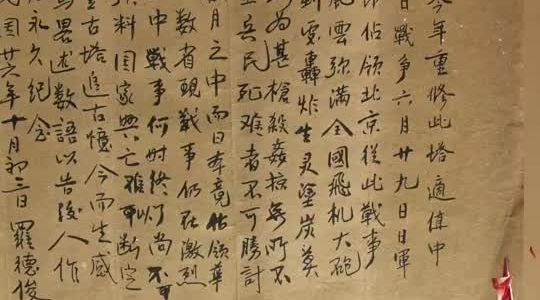 今年重修此塔適值中
日戰争六月廿九日日軍
佔領北京從此戰事
風雲弥满全國飛机大砲
到處轟炸生灵塗炭莫
为甚槍殺姦掠無所不
至兵民死难者不可勝計
月之中而日本竟佔領華
数省現戰事仍在激烈
中戰事何时终了尚不
料国家興亡难以断定
登古塔追古憶今而生感
畧述数語以告後人作
永久纪念
民国廿六年十月初三日 羅德俊